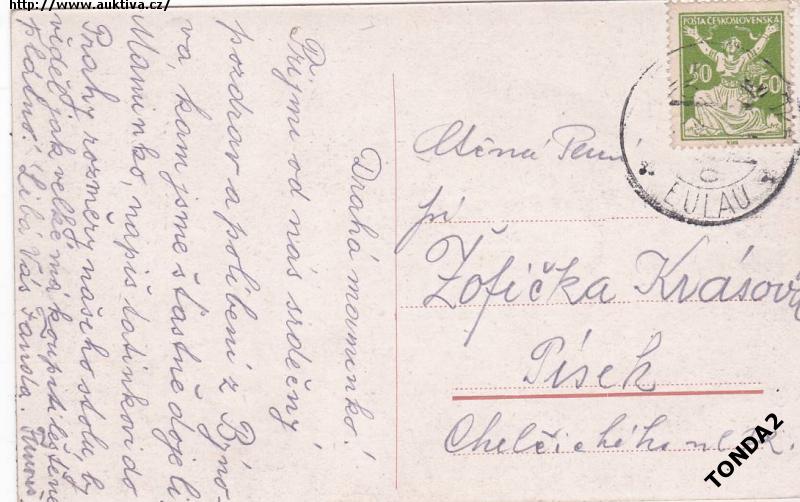 http://www.auktiva.cz/
Drahá maminko!
Přijmi od nás srdečný
pozdrav a políbení z Býno-
va, kam jsme šťastně dojeli.
Maminko, napiš tatínkovi do
Prahy rozměry našeho stolu, by
věděl jak velké má koupiti leštěné
plátno! Líbá Vás Fanda.
POŠTA ČESKOSLOVENSKÁ
50 50
EULAU
Ctěná Paní
pí
Žofička Krásová
Písek
Chelčického ul.
TONDA2